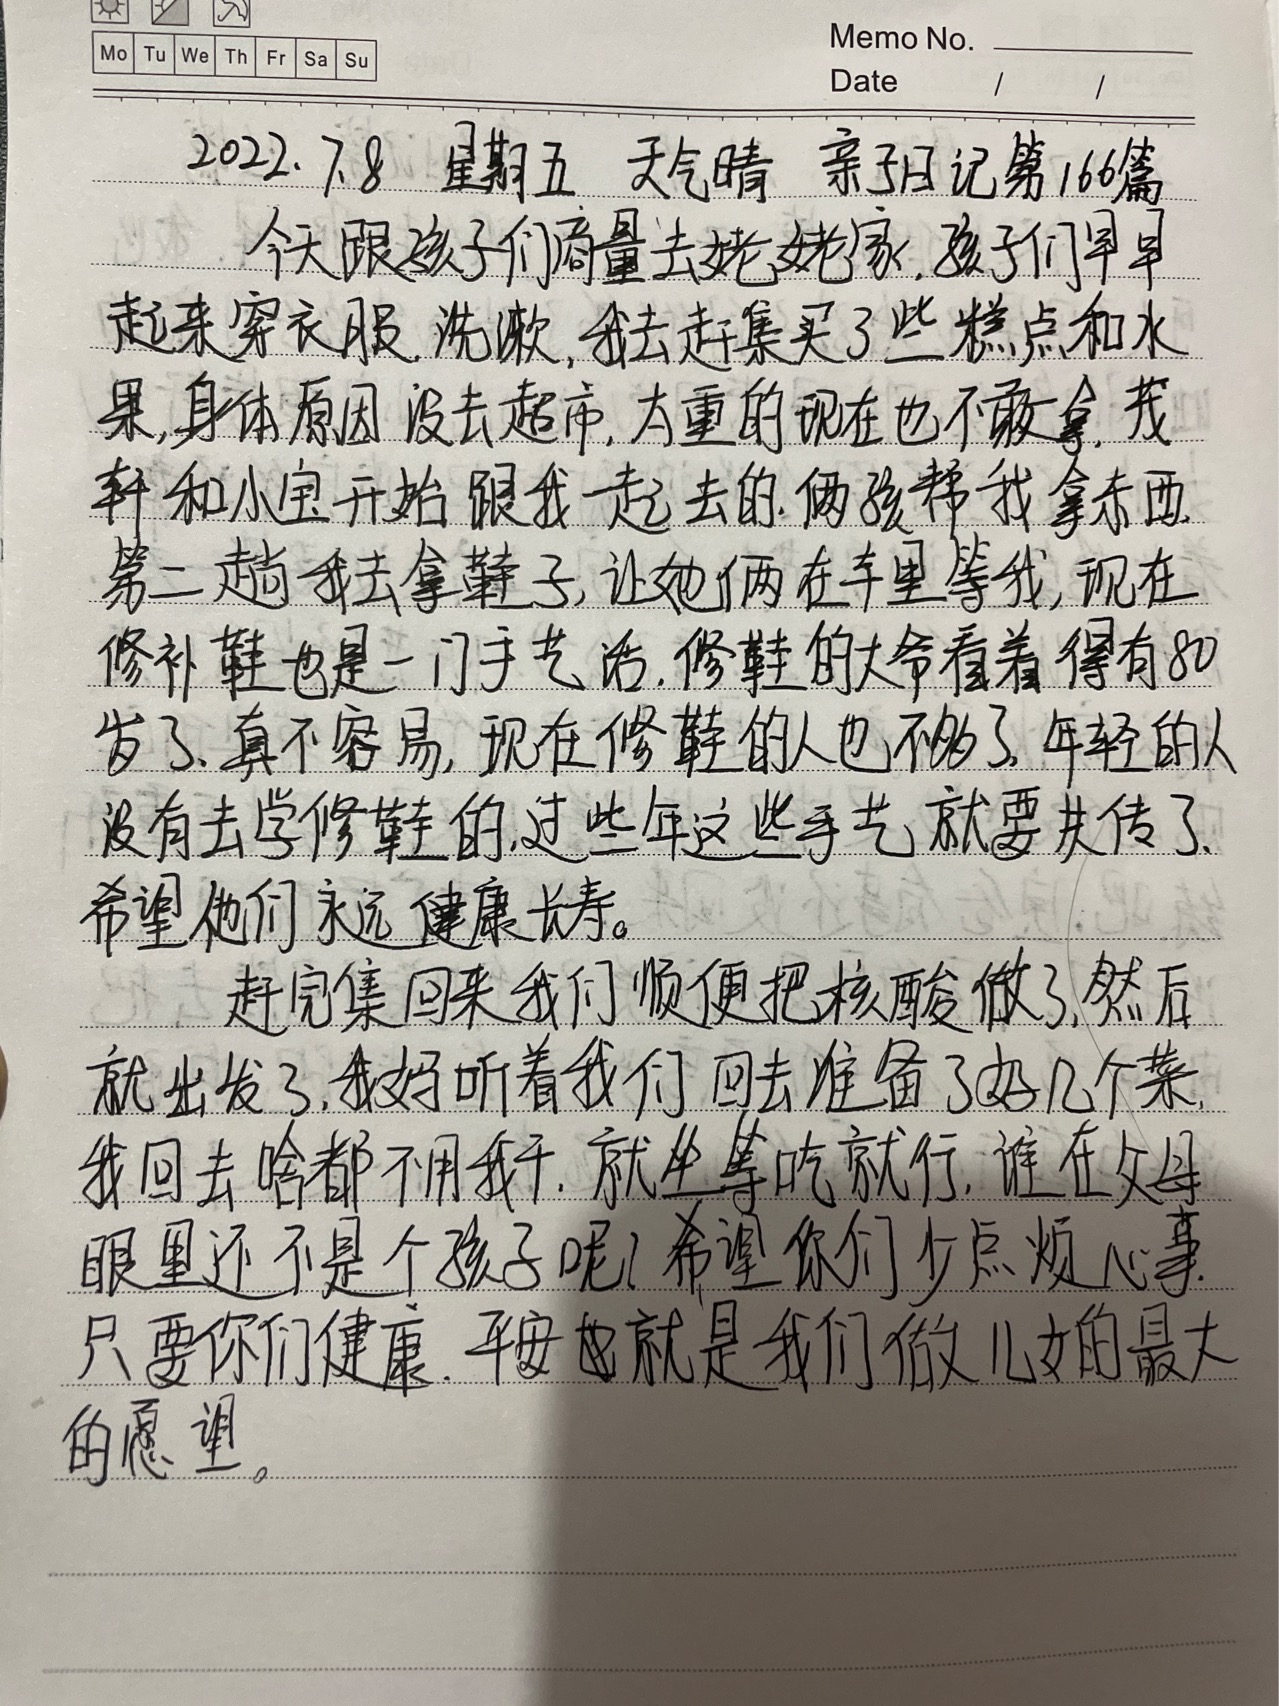 Mo Tu We Th Fr Sa Su
Memo No.
Date / /
2022.7.8 星期五 天气晴 亲子日记第166篇
今天跟孩子们商量去姥姥家,孩子们早早
起来穿衣服.洗漱,我去赶集买了些糕点和水
果,身体原因没去超市,太重的现在也不敢拿.茂
轩和小宝开始跟我一起去的.俩孩帮我拿东西.
第二趟我去拿鞋子,让她俩在车里等我,现在
修补鞋也是一门手艺活.修鞋的大爷看着得有80
岁了.真不容易,现在修鞋的人也不多了.年轻的人
没有去学修鞋的,过些年这些手艺就要失传了.
希望他们永远健康长寿。
赶完集回来我们顺便把核酸做了,然后
就出发了,我妈听着我们回去准备了好几个菜,
我回去啥都不用我干.就坐等吃就行,谁在父母
眼里还不是个孩子呢?希望你们少点烦心事.
只要你们健康.平安也就是我们做儿女的最大
的愿望。